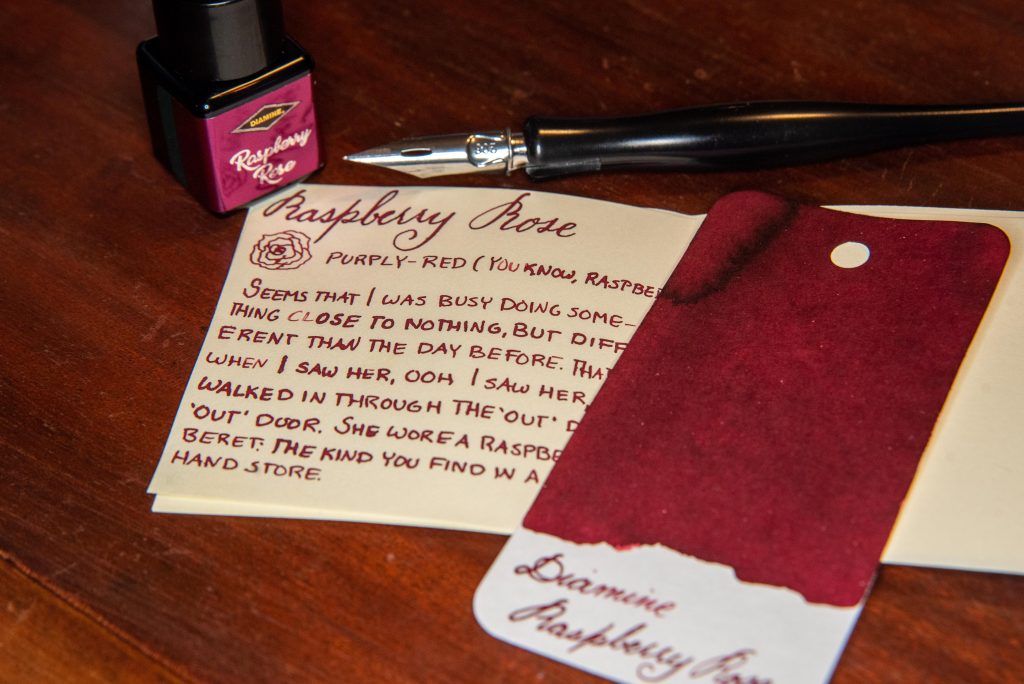 DIAMINE
Raspberry
Rose
Raspberry Rose
PURPLY-RED (YOU KNOW,
SEEMS THAT I WAS BUSY DOING SOME-
THING CLOSE TO NOTHING, BUT DIFF
ERENT THAN THE DAY BEFORE. THAT
WHEN I SAW HER, OOH I SAW HER,
WALKED IN THROUGH THE 'OUT'
'OUT' DOOR. SHE WORE A
BERET: THE KIND YOU FIND IN A
HAND STORE.
Diamine
Raspberry Rose